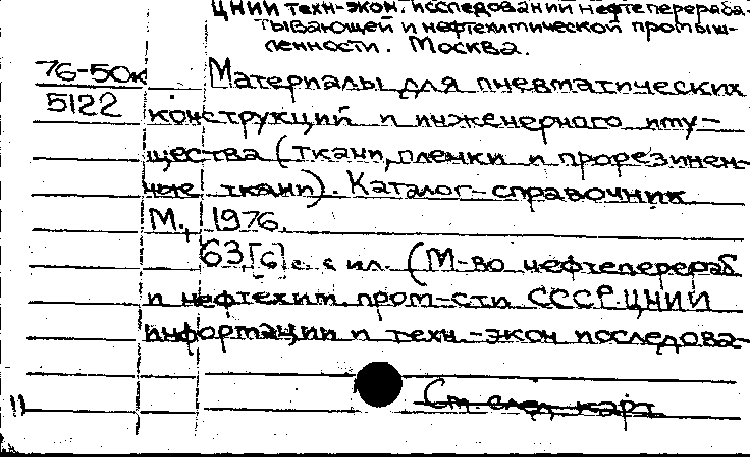 ЦНИИ техн-экон. исследований нефтеперераба-
тывающей и нефтехимической промыш-
ленности. Москва.
76-50к
5122
Материалы для пневматических
конструкций и инженерного иму-
щества (ткани, пленки и прорезинен-
ные ткани). Каталог-справочник
М., 1976.
63,[6] с. с ил. (М-во нефтеперераб
и нефтехим. пром-сти СССР. ЦНИИ
информации и техн.-экон исследова-
См. след. карт
11